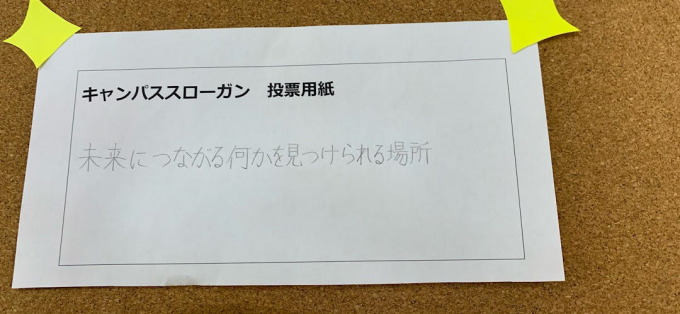 キャンパススローガン　投票用紙
未来につながる何かを見つけられる場所